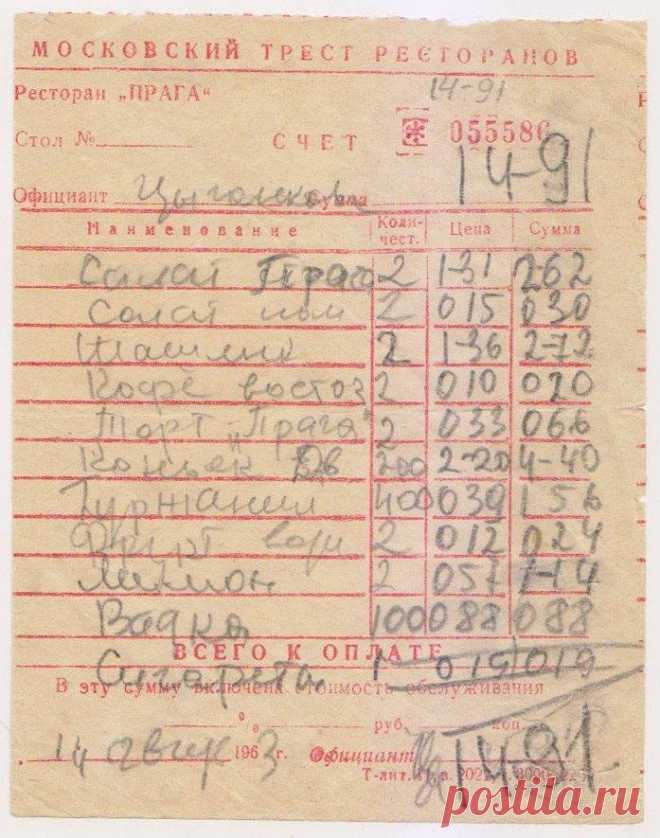 МОСКОВСКИЙ ТРЕСТ РЕСТОРАНОВ
14-91
Ресторан „ПРАГА“
Стол № СЧЕТ 055586
14-91
Официант Цыганков Сумма
Наименование Коли-чест. Цена Сумма
Салат Прага 2 1-31 2-62
Салат пом 2 015 030
Шашлык 2 1-36 2-72
Кофе восточ 2 010 020
Торт „Прага" 2 033 066
Коньяк Дв 200 2-20 4-40
Гурджаани 400 039 156
Фрукт воды 2 012 024
Лимон 2 057 1-14
Водка 100 088 088
ВСЕГО К ОПЛАТЕ
Сигареты 1 019 019
В эту сумму включена стоимость обслуживания
% руб. коп.
14 август 1963 г. Официант 14-91
Т-лит.
postila.ru